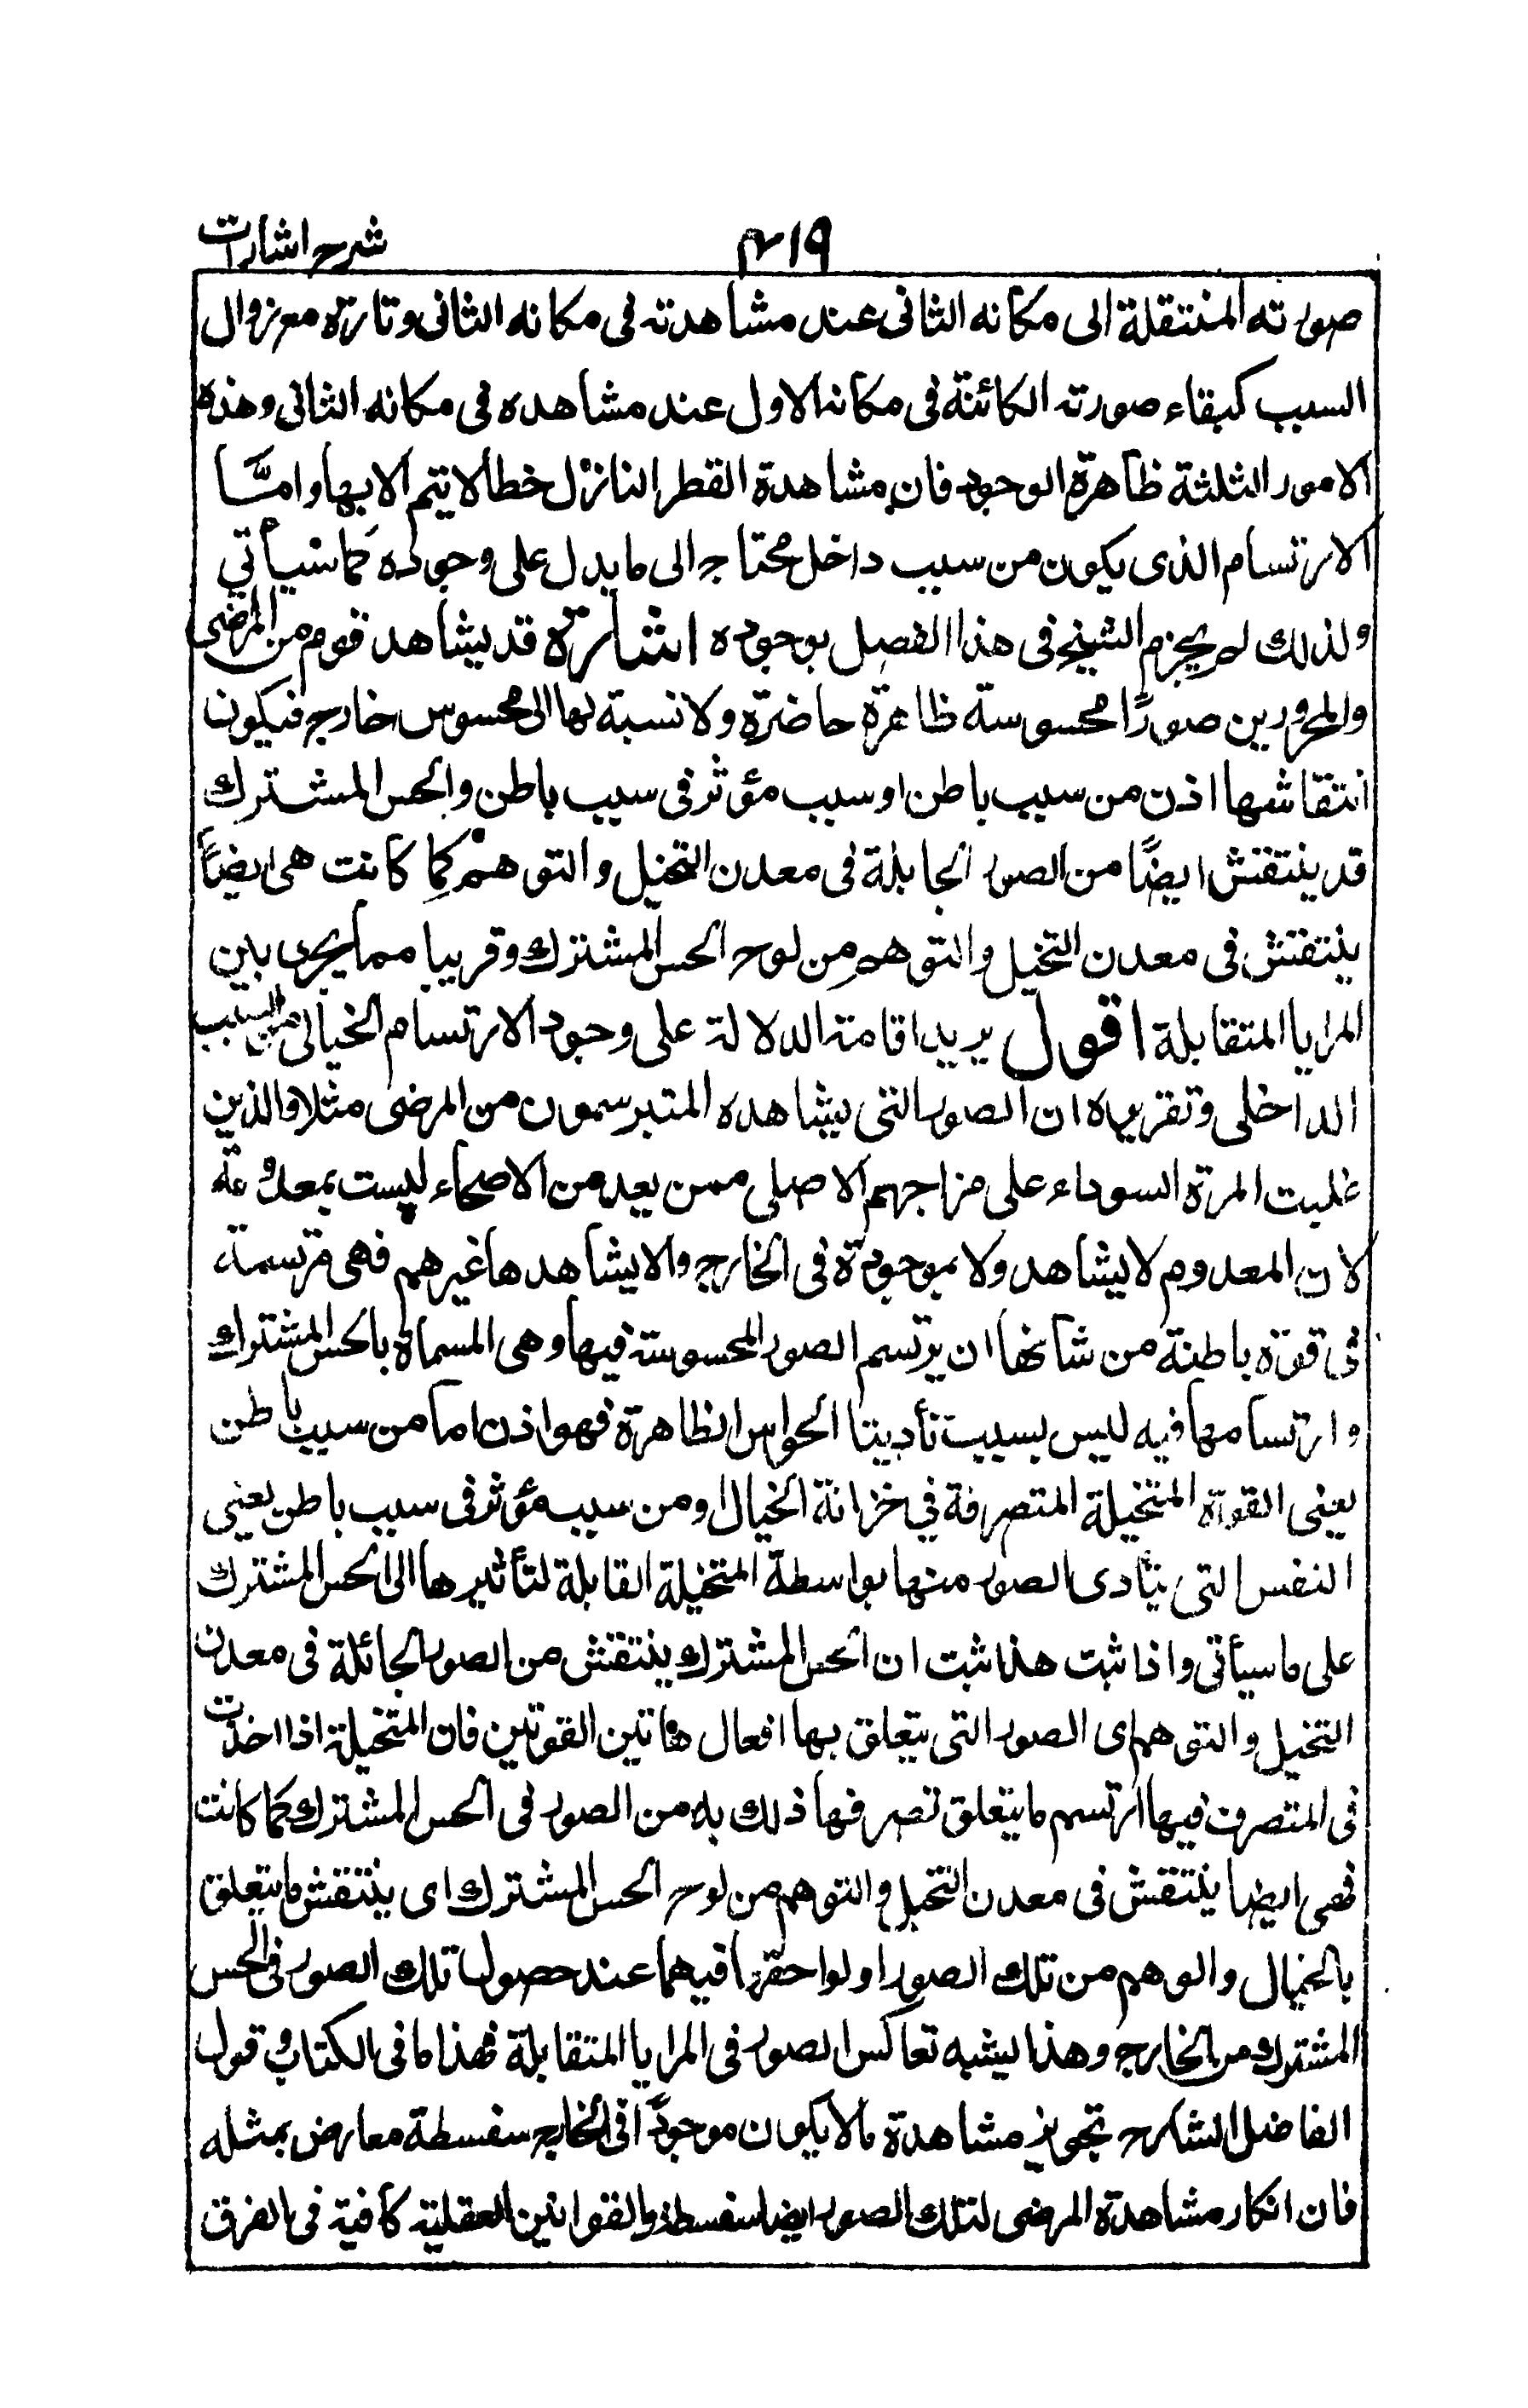 شرح اشارات
٤١٩
صورته المنتقلة الى مكانه الثانى عند مشاهدته فى مكانه الثانى وتارة مع زوال
السبب كبقاء صورته الكائنة فى مكانه الاول عند مشاهده فى مكانه الثانى وهذه
الامور الثلثة ظاهرة الوجود فان مشاهدة القطر النازل خطا لا يتم الا بها وامّا
الارتسام الذى يكون من سبب داخل محتاج الى ما يدل على وجوده كما سيأتي
ولذلك لم يجزم الشيخ فى هذا الفصل بوجوده اشارة قد يشاهد قوم من المرضى
والمحرورين صورًا محسوسة ظاهرة حاضرة ولا نسبة لها الى محسوس خارج فيكون
انتقاشها اذن من سبب باطن او سبب مؤثر فى سبب باطن والحس المشترك
قد ينتقش ايضًا من الصور الجايلة فى معدن التخيل والتوهم كما كانت هى ايضًا
ينتقش فى معدن التخيل والتوهم من لوح الحس المشترك وقريبا مما يجرى بين
المرايا المتقابلة اقول يريد اقامة الدلالة على وجود الارتسام الخيالى من السبب
الداخلى وتقريره ان الصور التى يشاهده المتبرسمون من المرضى مثلا والذين
غلبت المرة السوداء على مزاجهم الاصلى ممن يعد من الاصحاء ليست بمعدومة
لان المعدوم لا يشاهد ولا بموجودة فى الخارج والا يشاهدها غيرهم فهى مرتسمة
فى قوة باطنة من شانها ان يرتسم الصور المحسوسة فيها وهى المسماة بالحس المشترك
وارتسامها فيه ليس بسبب تأديتا الحواس الظاهرة فهو اذن اما من سبب باطن
يعنى القوة المتخيلة المتصرفة في خزانة الخيال او من سبب مؤثر فى سبب باطن يعنى
النفس التى يتأدى الصور منها بواسطة المتخيلة القابلة لتأثيرها الى الحس المشترك
على ما سيأتى واذا ثبت هذا ثبت ان الحس المشترك ينتقش من الصور الجائلة فى معدن
التخيل والتوهم اى الصور التى يتعلق بها افعال هاتين القوتين فان المتخيلة اذا اخذت
فى المتصرف فيها ارتسم ما يتعلق تصرفها ذلك به من الصور فى الحس المشترك كما كانت
فهى ايضا ينتقش فى معدن التخيل والتوهم من لوح الحس المشترك اى ينتقش ما يتعلق
بالخيال والوهم من تلك الصور او لواحقها فيهما عند حصول تلك الصور فى الحس
المشترك من الخارج وهذا يشبه تعاكس الصور فى المرايا المتقابلة فهذا ما فى الكتاب وقول
الفاضل الشارح تجويز مشاهدة ما لا يكون موجودًا فى الخارج سفسطة معارض بمثله
فان انكار مشاهدة المرضى لتلك الصور ايضا سفسطة والقوانين العقلية كافية فى الفرق